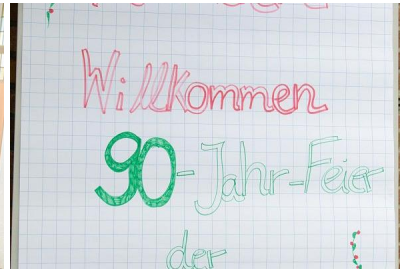 Willkommen
90-Jahr-Feier
der